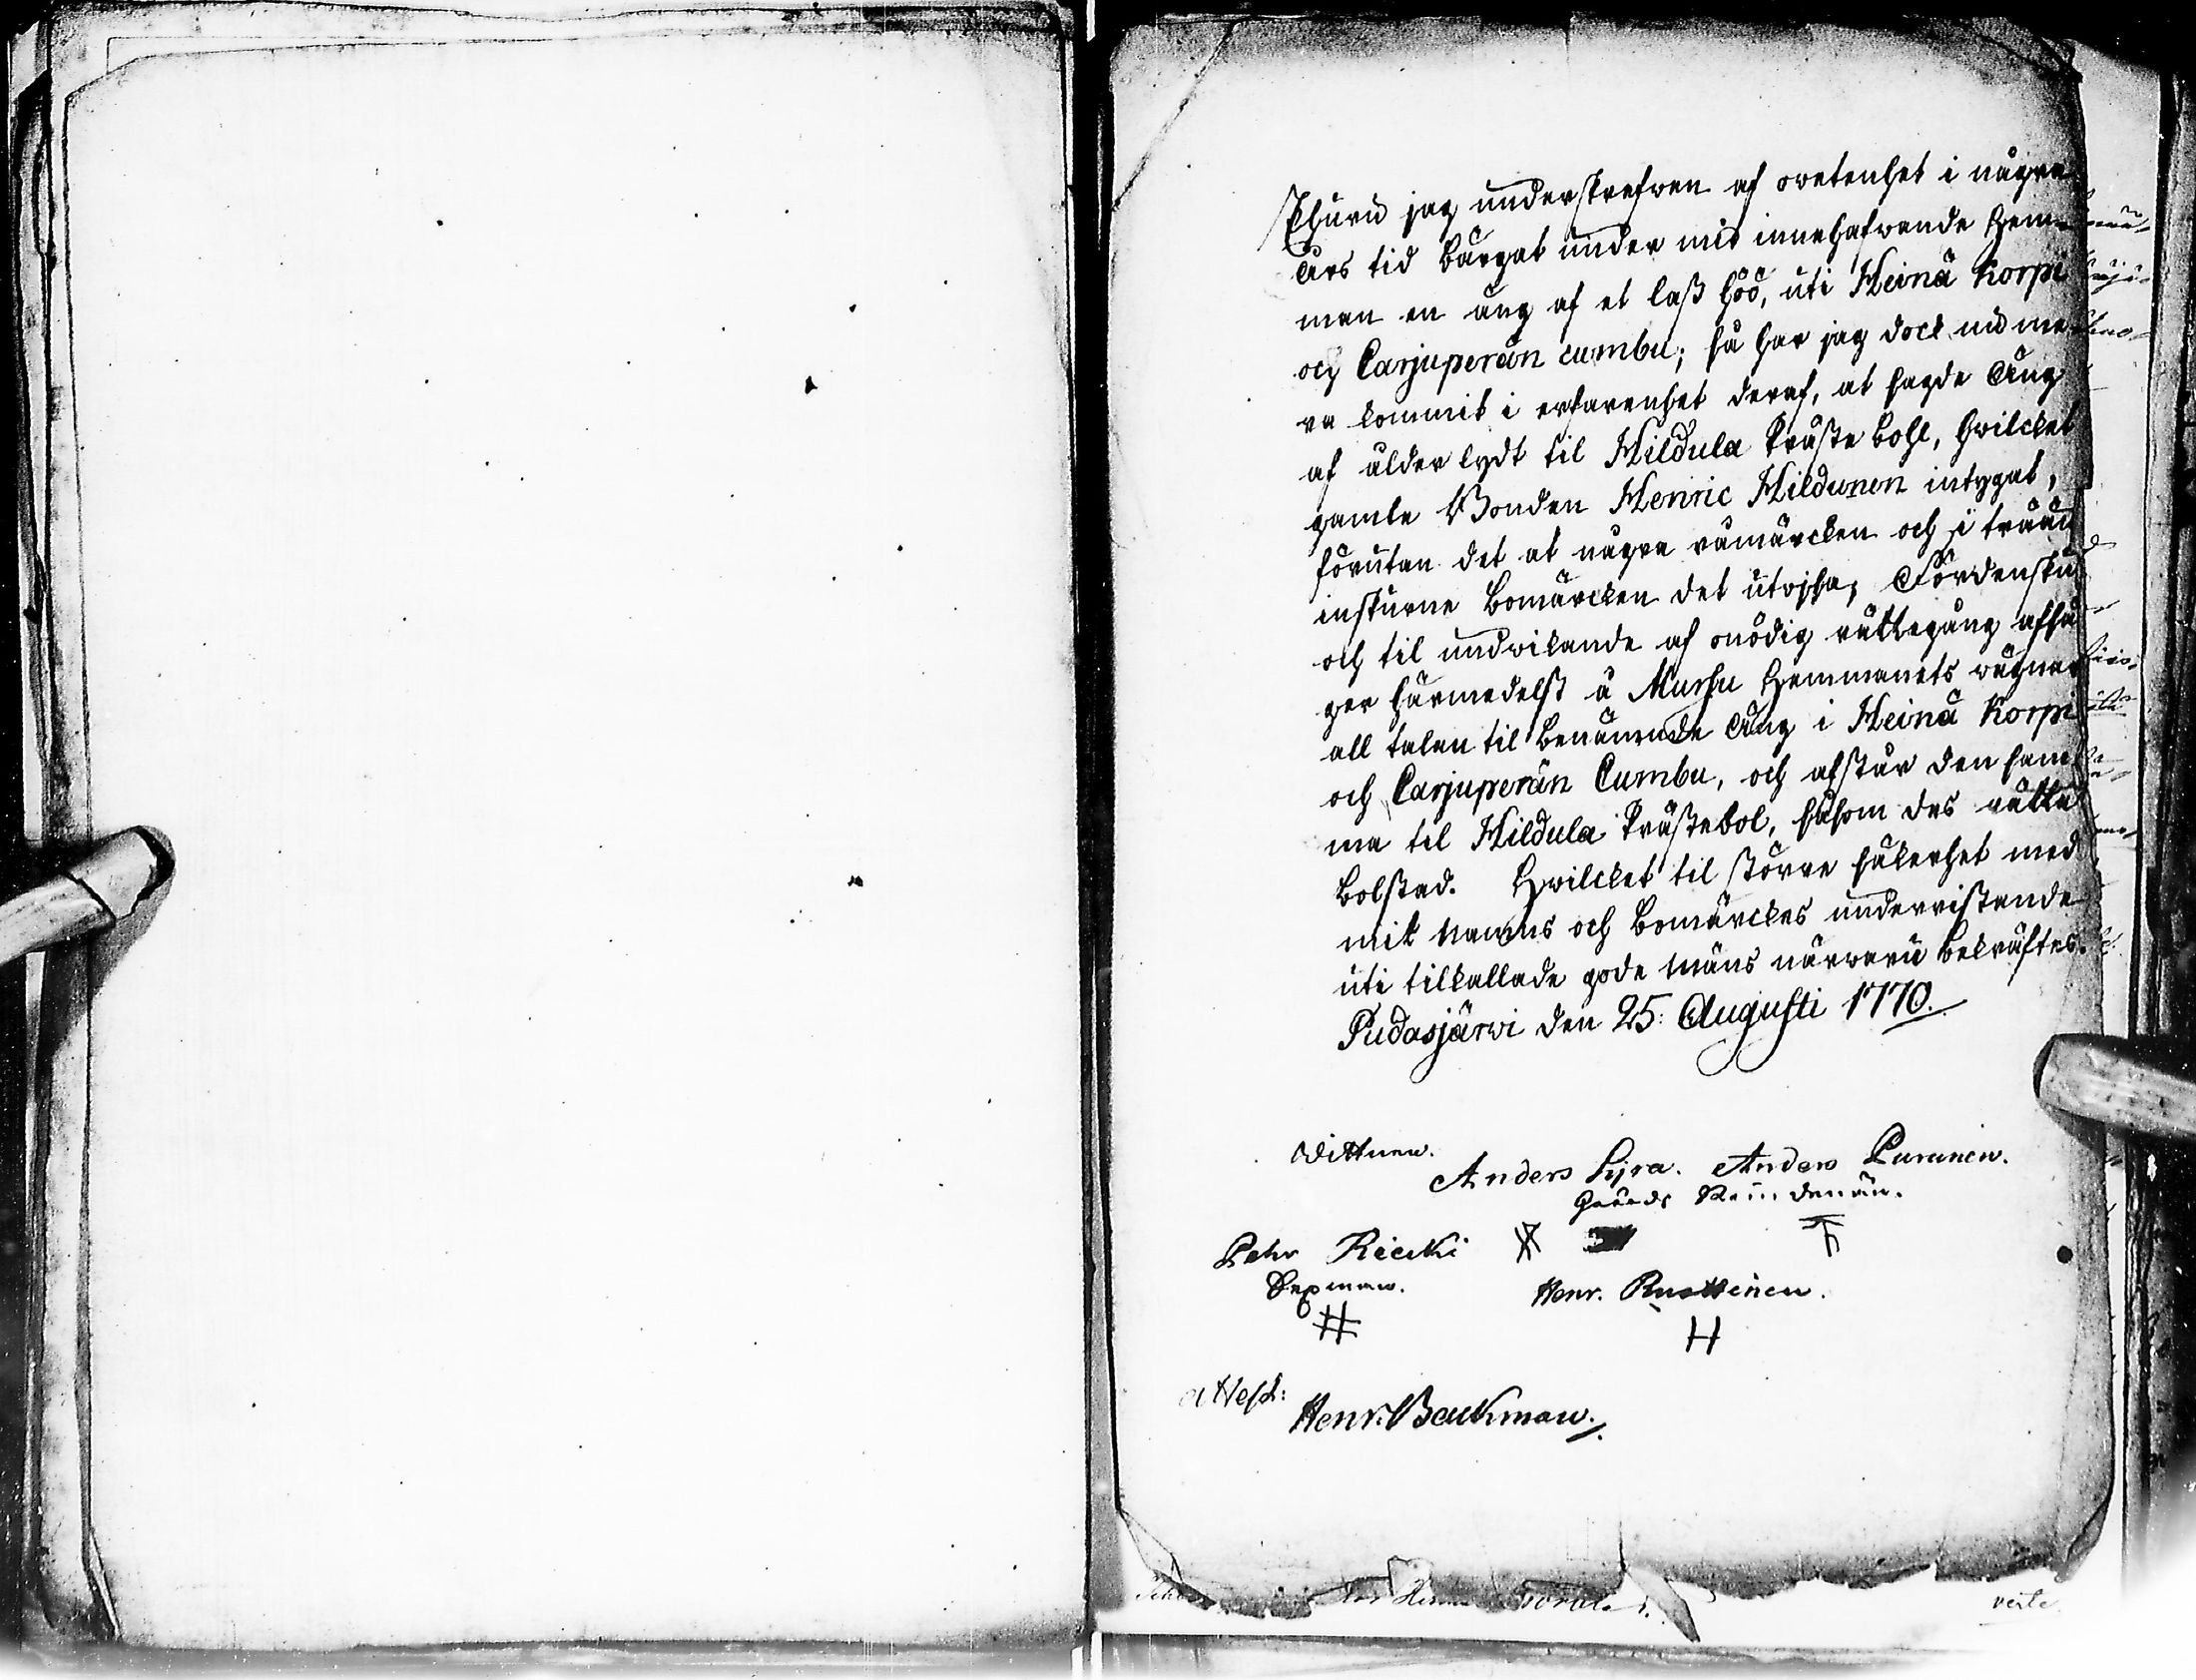 Ehurú jag underskrefwen af owetenhet i några
åhrs tid bärgat under mit innehafwande Hem-
man en äng af et lass höö, uti Heinä Korpi
och Carjuperän cumbu; så har jag dock nu me-
ra kommit i erfarenhet deraf, at sagde Äng
af ålder lydt til Hildula Prästebohl, hwilcket
gamle Bonden Henric Hildunen intygat,
förutan det at några råmärcken och i trään
inskurne Bomärcken det utwisa; Fördenskul
och til undwikande af onödig rättegång afsä-
ger härmedelst å Murhu Hemmanets wägnar
all talan til benämnde Äng i Heinä Korpi
och Carjuperän Cumbu, och afstår den sam-
ma til Hildula Prästebol, såsom des rätta
Bolstad. Hwilcket til större säkerhet med
mit namns och Bomärckes underristande
uti tilkallade gode mäns närwaru bekräftes.
Pudasjärwi den 25: Augusti 1770.
Wittnen.
Anders Lyra. Anders Puranen.
Petr Riecki
Sexman.
Henr. Ruottinen.
H
attest:
Henr. Backman.
verte